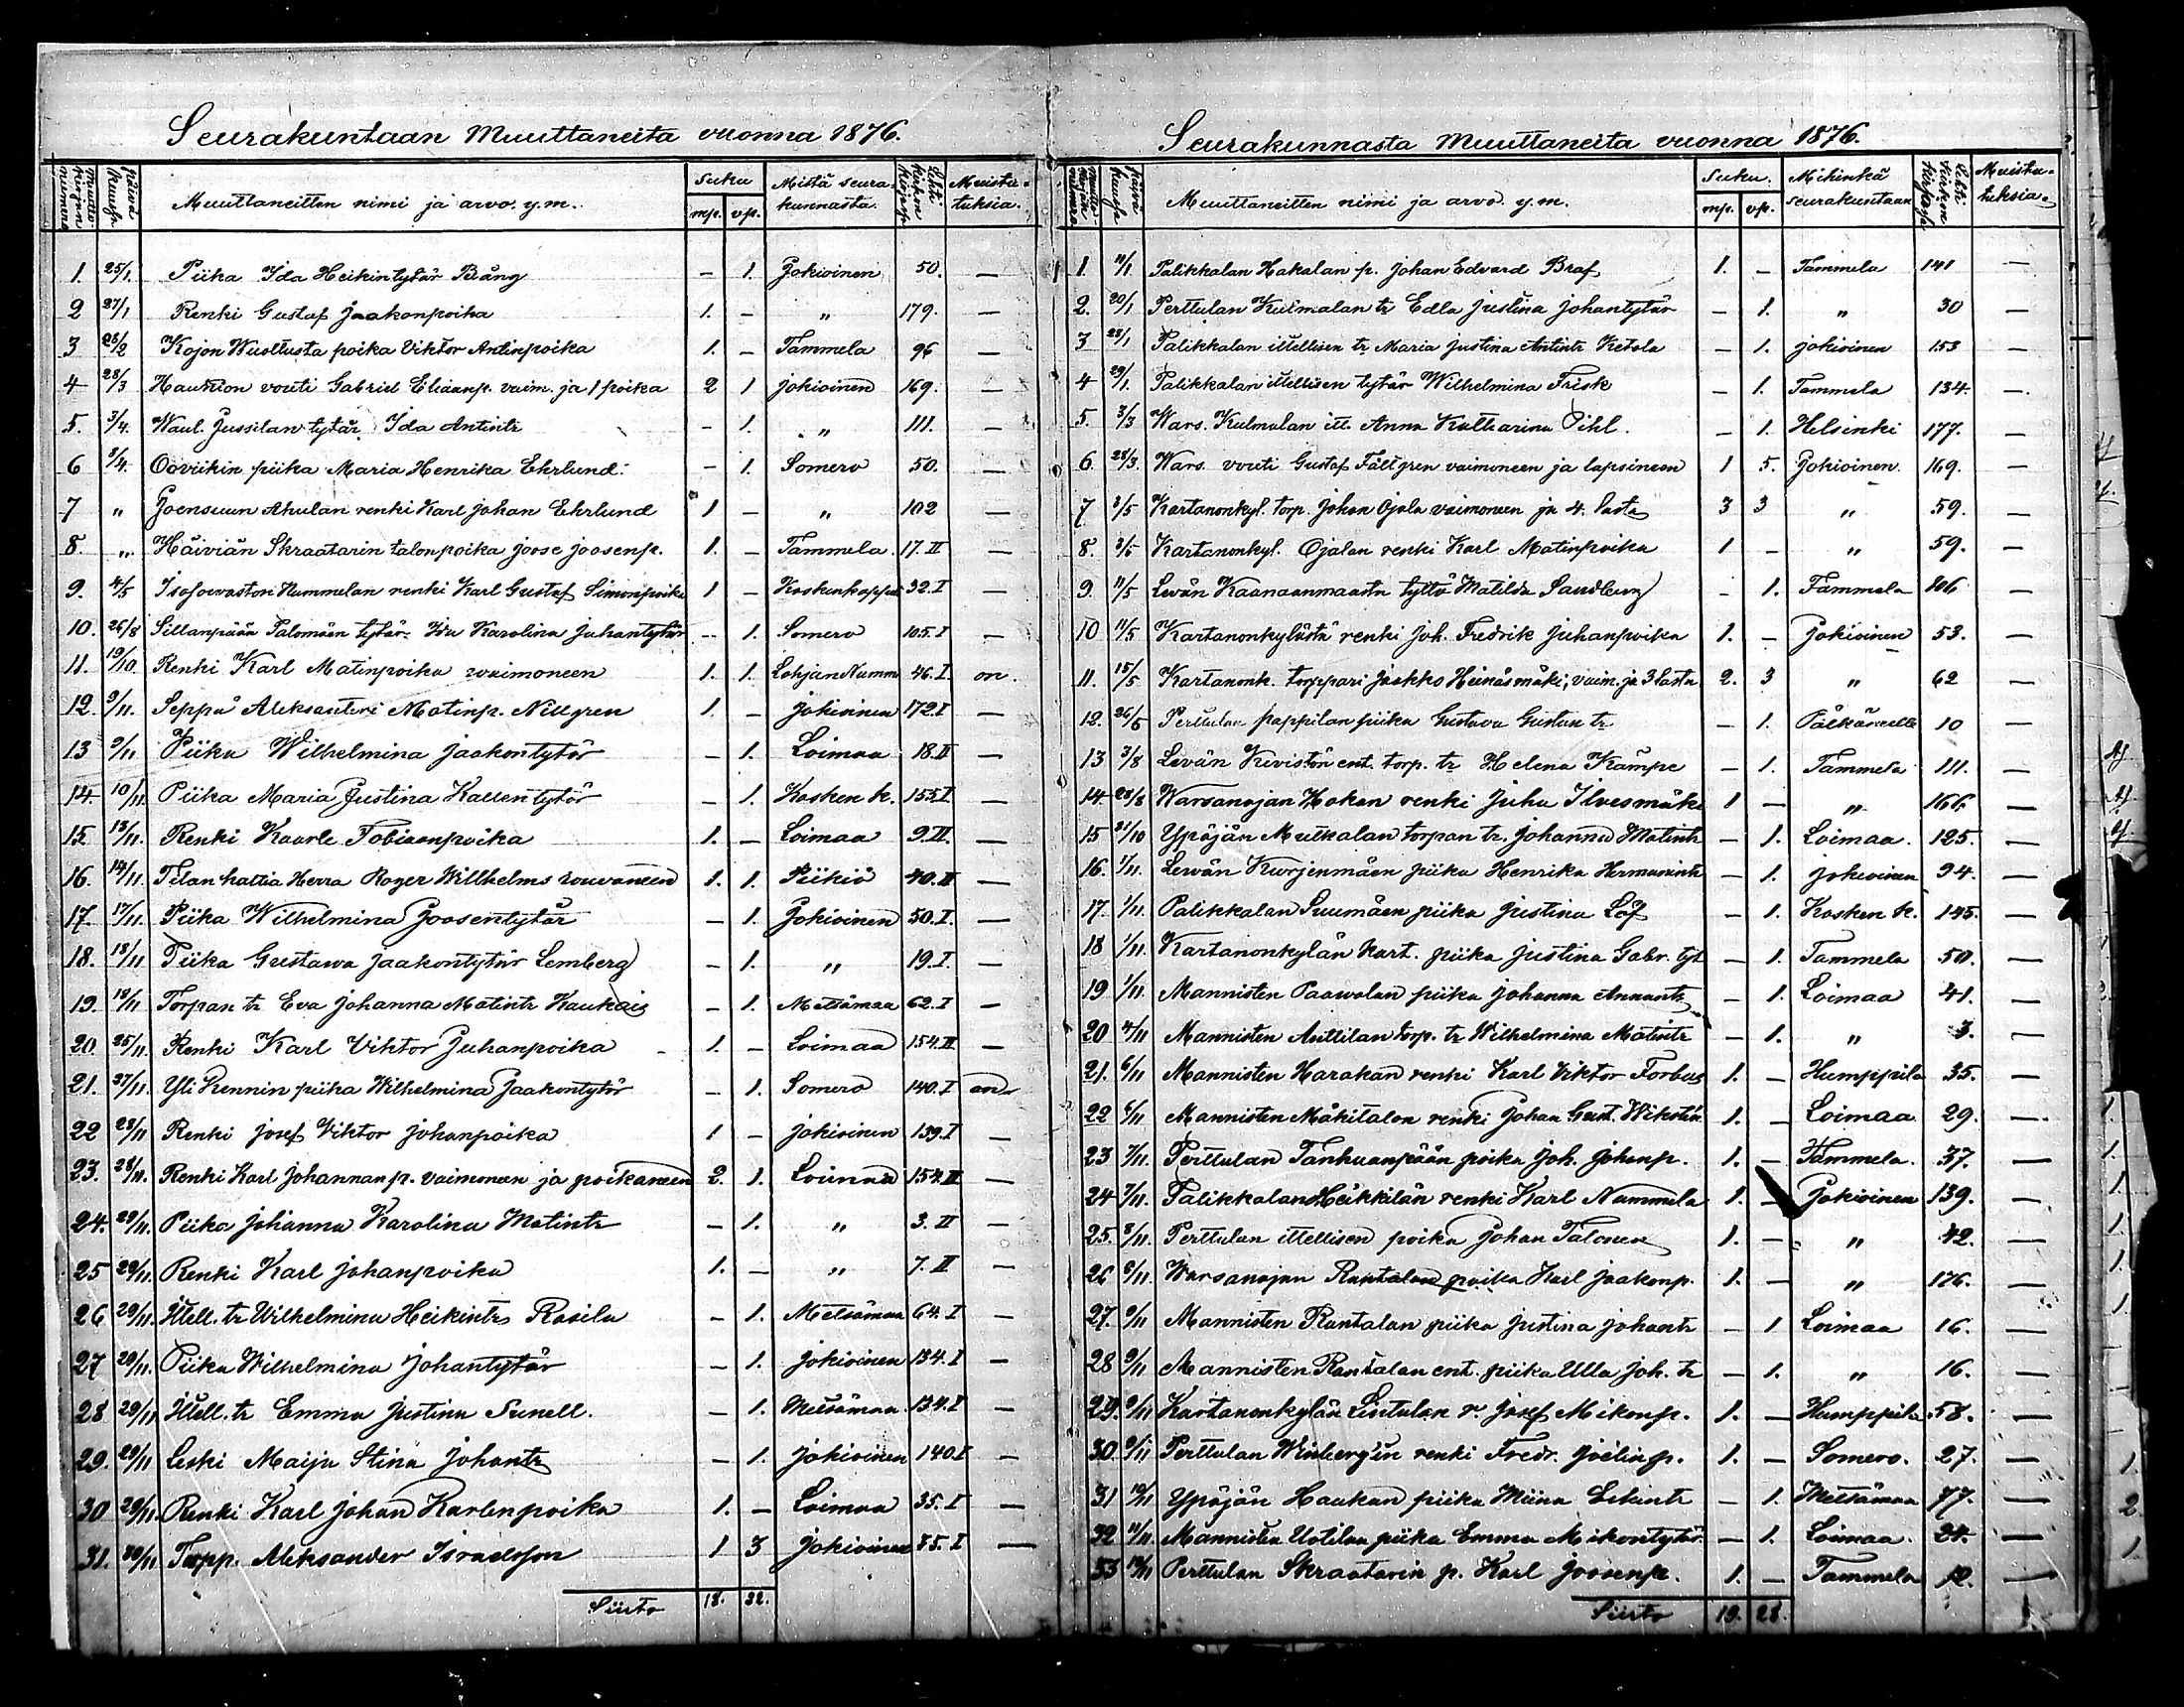 Seurakuntaan Muuttaneita vuonna 1876.
Muuttokirjan numero
päivä kuuk.
Muuttaneitten nimi ja arvo. y.m.
Suku
mp. vp.
Mistä seurakunnasta.
Muistutuksia.
1. 25/1. Piika Ida Heikintytär Bång – 1. Jokioinen 50. –
2 27/1 Renki Gustaf Jaakonpoika 1. – „ 179. –
3 28/2 Kojon Wuoltusta poika Viktor Antinpoika 1. – Tammela 96 –
4 28/3 vouti Gabriel Eliaanp. vaim. ja 1 poika 2 1 Jokioinen 169. –
5. 3/4. Waul. Jussilan tytär Ida Antintr – 1. „ 111. –
6 3/4. piika Maria Henrika Ehrlund. – 1. Somero 50. –
7 „ Joensuun Ahulan renki Karl Johan Ehrlund 1 – „ 102 –
8. „ Häiviän Skraatarin talonpoika Joose Joosenp. 1. – Tammela. 17. II –
9. 4/5 Hummelan renki Karl Gustaf Simonpoika 1 – 32. I –
10. 26/8 Sillanpään Talomäen tytär Ida Karolina Juhantytär – 1. Somero 105. I –
11. 19/10. Renki Karl Matinpoika vaimoneen 1. 1. Lohjan Numm 46. I on.
12. 9/11. Seppä Aleksanteri Matinp. Nillgren 1. – Jokioinen 172 I –
13 9/11 Piika Wilhelmina Jaakontytär – 1. Loimaa 18. II –
14. 10/11. Piika Maria Justina Kallentytär – 1. Kosken k. 155 I –
15 13/11. Renki Kaarle Tobiaanpoika 1. – Loimaa 9. II. –
16. 14/11. Tilan haltia Herra Roger Willhelms rouvaneen 1. 1. Piikiö 40. II –
17. 17/11. Piika Wilhelmina Joosentytär – 1. Jokioinen 50. I. –
18. 18/11 Piika Gustawa Jaakontytär Lemberg – 1. „ 19. I –
19. 18/11 Torpan tr Eva Johanna Matintr Haukais – 1. Metsämaa 62. I –
20. 25/11. Renki Karl Viktor Juhanpoika 1. – Loimaa 154. II –
21. 27/11. Yli Rennin piika Wilhelmina Jaakontytär – 1. Somero 140. I on
22 28/11 Renki Josef Viktor Johanpoika 1 – Jokioinen 139. I –
23. 28/11. Renki Karl Johannanp. vaimoneen ja poikaneen 2. 1. Loimaa 154. II –
24. 29/11. Piika Johanna Karolina Matintr – 1. „ 3. II –
25 29/11. Renki Karl Johanpoika 1. – „ 7. II –
26 29/11. Itell. tr Wilhelmina Heikintr Rasila – 1. Metsämaa 64. I –
27 29/11. Piika Wilhelmina Johantytär – 1. Jokioinen 134. I –
28 29/11 Itell. tr Emma Justina Sunell. – 1. Metsämaa 134. I –
29. 29/11 Leski Maija Stina Johantr – 1. Jokioinen 140 I –
30 29/11. Renki Karl Johan Karlenpoika 1. – Loimaa 35. I –
31. 30/11 Torpp. Aleksander Israelsson 1 3 Jokioinen 75. I –
Siirto 18. 32.
Seurakunnasta Muuttaneita vuonna 1876.
päivä kuuk.
Muuttaneitten nimi ja arvo. y.m.
Suku.
mp. vp.
Mihinkä seurakuntaan
Muistutuksia.
1. 11/1 Palikkalan Hakalan p. Johan Edvard Braf 1. – Tammela 141 –
2. 20/1 Perttulan Kulmalan tr Edla Justina Johantytär – 1. „ 30 –
3 28/1 Palikkalan itellisen tr Maria Justina Antintr Ketola – 1. Jokioinen 153 –
4 29/1. Palikkalan itellisen tytär Wilhelmina Frisk – 1. Tammela 134. –
5. 3/3 Wars. Kulmalan itt. Anna Katharina Pihl. – 1. Helsinki 177. –
6. 28/3. Wars. vouti Gustaf Fältgren vaimoneen ja lapsineen 1 5. Jokioinen 169. –
7 3/5 Kartanonkyl. torp. Johan Ojala vaimoneen ja 4. lasta 3 3 „ 59. –
8. 3/5 Kartanonkyl. Ojalan renki Karl Matinpoika 1 – „ 59. –
9. 11/5 Levän Kaanaanmaasta tyttö Matilda Sandberg – 1. Tammela 106 –
10 11/5 Kartanonkylästä renki Joh. Fredrik Juhanpoika 1. – Jokioinen 53. –
11. 15/5 Kartanonk. torppari Jaakko Heinäsmäki, vaim. ja 3 lasta 2. 3 „ 62 –
12. 26/5 Perttulan pappilan piika Gustava Gustan tr – 1. Pälkäneelle 10 –
13 3/8 Levän Kivistön ent. torp. tr Helena Kämpe – 1. Tammela 111. –
14. 28/8 Warsanojan Hakan renki Juha Ilvesmäki 1 – „ 166. –
15 21/10 Ypäjän Mulkalan torpan tr. Johanna Matintr – 1. Loimaa. 125. –
16. 1/11. Lewän Kurjenmäen piika Henrika Hermanintr – 1. Jokioinen 94. –
17. 1/11. Palikkalan Suumäen piika Justina Löf – 1. Kosken k. 145. –
18 1/11. Kartanonkylän kart. piika Justina Gabr. tyt – 1. Tammela 50. –
19 1/11. Mannisten Paawolan piika Johanna Annantr – 1. Loimaa 41. –
20 4/11 Mannisten Anttilan torp. tr Wilhelmina Matintr – 1. „ 3. –
21. 6/11 Mannisten Harakan renki Karl Viktor Forbus 1. – Humppila 35. –
22 6/11 Mannisten Mäkitalon renki Johan Gust. Wikstén 1. – Loimaa 29. –
23 7/11. Perttulan Tanhuanpään poika Joh. Johanp. 1. – Tammela. 37. –
24 7/11. Palikkalan Heikkilän renki Karl Nummela 1. – Jokioinen 139. –
25. 8/11. Perttulan itellisen poika Johan Talonen 1. – „ 42. –
26 8/11. Warsanojan Rantalan poika Karl Jaakonp. 1. – „ 176. –
27. 9/11 Mannisten Rantalan piika Justina Johantr – 1 Loimaa 16. –
28 9/11 Mannisten Rantalan ent. piika Ulla Joh. tr – 1. „ 16. –
29. 9/11 Kartanonkylän Liutulan r. Josef Mikonp. 1. – Humppila 58. –
30. 9/11 Perttulan Winbergin renki Fredr. Joelinp. 1. – Somero. 27. –
31 10/11 Ypäjän Haukan piika Miina Eskintr – 1. Metsämaa 77. –
32 11/11. Mannisten Uotilan piika Emma Mikontytär – 1. Loimaa. 24. –
33 12/11 Perttulan Skraatarin p. Karl Joosenp. 1. – Tammela 12. –
Siirto 19. 28.